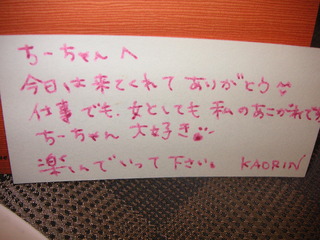 ちーちゃんへ
今日は来てくれて ありがとう
仕事でも、女としても 私のあこがれです
ちーちゃん 大好き
楽しんでいって下さい。 KAORIN